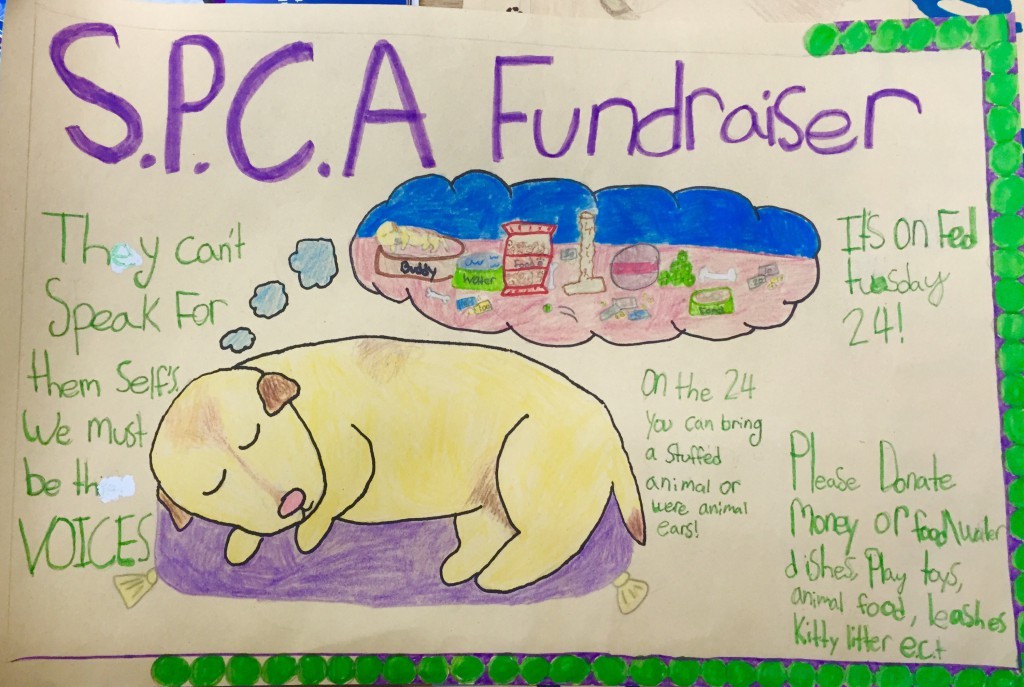 S.P.C.A Fundraiser
They can't
Speak For
them Self's.
We must
be th
VOICES
Buddy
Water
Food
It's on Fed
tuesday
24!
On the 24
You can bring
a Stuffed
animal or
were animal
ears!
Please Donate
Money or food\water
dishes, Play toys,
animal food, leashes
Kitty litter e.c.t